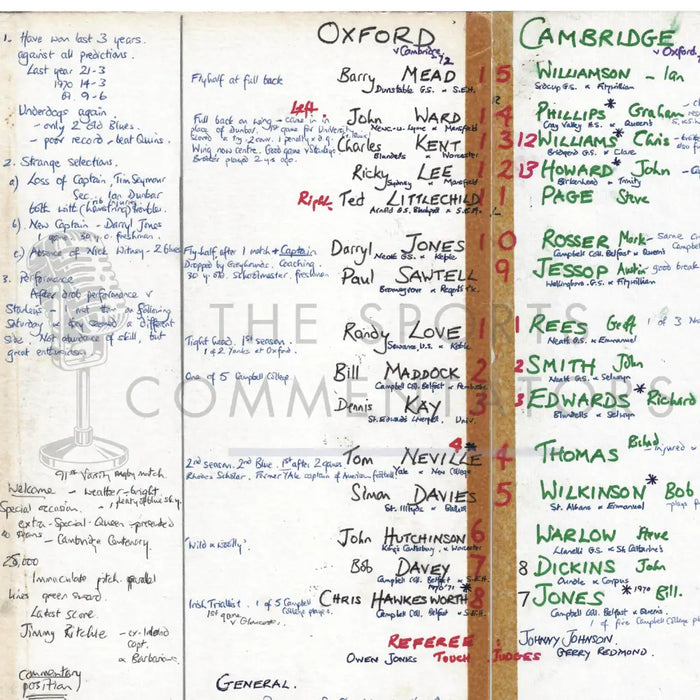 OXFORD
v Cambridge '72
CAMBRIDGE
v Oxford
1. Have won last 3 years.
against all predictions.
Last year 21-3
1970 14-3
69. 9-6
Underdogs again.
- only 2 old Blues.
- poor record - beat Quins.
2. Strange selections.
a) Loss of Captain, Tim Seymour
Sec. Ian Dunbar
both with (hamstring) troubles.
b) New Captain - Darryl Jones
freshman.
c) Absence of Nick Witney - 2 blues
3. Performance
After drot performance v
Stanleys following
Saturday a different
side. Not abundance of skill, but
great enthusiasm
91st Varsity rugby match.
Welcome - weather - bright
plenty of blue sky.
Special occasion.
extra-special - Queen - presented
to teams - Cambridge Centenary.
25,000
Immaculate pitch. parallel
lines green sward.
Latest score.
Jimmy Ritchie - ex-Ireland
capt.
& Barbarians.
commentary
position
Flyhalf at full back
Barry MEAD 15
Dunstable G.S. & S.E.H.
Left.
Full back on wing - came in in
place of Dunbar. 1st game for University
John WARD 14
Newc-u-Lyme & Mansfield
Wing now centre. Good game v Stanleys
Brother played 2 yrs ago.
Charles KENT 13
Blundells & Worcester
Ricky LEE 12
Sydney & Mansfield
Right. Ted LITTLECHILD 11
Arnold G.S. Blackpool & S.E.H.
Flyhalf after 1 match & Captain
Dropped by Greyhounds. Coaching
30 y old Schoolmaster. freshman
Darryl JONES 10
Neath G.S. & Keble
Paul SAWTELL 9
Bromsgrove & Regent's Pk.
Tight head. 1st season.
1 of 2 Yanks at Oxford.
Randy LOVE 1
Sewanee, U.S. & Keble
One of 5 Campbell College
Bill MADDOCK 2
Campbell Coll. Belfast & Pembroke
Dennis KAY 3
St. Edwards Liverpool. Univ.
2nd season. 2nd Blue. 1st after 2 games
Rhodes Scholar. Former YALE captain of American football
4 *
Tom NEVILLE 4
Yale & New College
Simon DAVIES 5
St. Illtyds & Balliol
"Wild & Woolly"
John HUTCHINSON 6
King's Canterbury & Worcester
Bob DAVEY 7
Campbell Coll. Belfast & S.E.H.
Irish Triallist. 1 of 5 Campbell
College players.
1st game v Gloucester.
1970/71 *
CHRIS HAWKESWORTH 8
Campbell Coll. Belfast & S.E.H.
WILLIAMSON - Ian
Sidcup G.S. & Fitzwilliam
PHILLIPS * Graham
Cray Valley G.S. & Queen's
12 WILLIAMS * Chris
Bridgend G.S. & Clare
13 HOWARD * John
Birkenhead & Trinity
PAGE Steve
ROSSER Mark - same
Campbell Coll. Belfast & Queen's
JESSOP Austin - good break
Wallingford. G.S. & Fitzwilliam
1 REES Geoff 1 of 3
Neath G.S. & Emmanuel
2 SMITH John
Neath G.S. & Selwyn
3 EDWARDS * Richard
Blundells & Selwyn
THOMAS - injured
WILKINSON * Bob
St. Albans & Emmanuel
WARLOW Steve
Llanelli G.S. & St. Catharine's
8 DICKINS John
Oundle & Corpus
7 JONES * 1970 Bill.
Campbell Coll. Belfast & Queens.
1 of five Campbell College
REFEREE: JOHNNY JOHNSON.
OWEN JONES TOUCH JUDGES GERRY REDMOND.
GENERAL.
THE SPORTS
COMMENTATORS